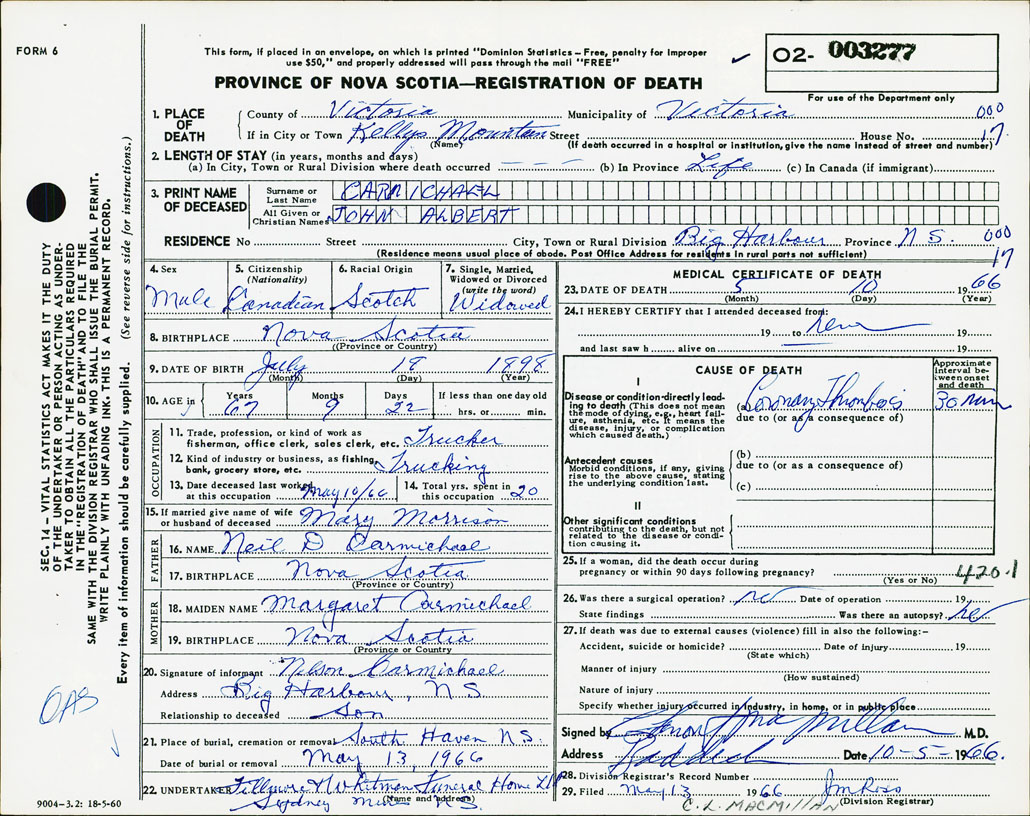 FORM 6
This form, if placed in an envelope, on which is printed "Dominion Statistics – Free, penalty for improper
use $50," and properly addressed will pass through the mail "FREE"
PROVINCE OF NOVA SCOTIA—REGISTRATION OF DEATH
02- 003277
For use of the Department only
1. PLACE OF DEATH
County of Victoria Municipality of Victoria 000
If in City or Town Kellys Mountain Street House No. 17
(Name) (If death occurred in a hospital or institution, give the name instead of street and number)
2. LENGTH OF STAY (in years, months and days)
(a) In City, Town or Rural Division where death occurred — — — (b) In Province Life (c) In Canada (if immigrant)
3. PRINT NAME OF DECEASED
Surname or Last Name CARMICHAEL
All Given or Christian Names JOHN ALBERT
RESIDENCE No Street City, Town or Rural Division Big Harbour Province N.S. 000
(Residence means usual place of abode. Post Office Address for residents in rural parts not sufficient) 17
4. Sex Male
5. Citizenship (Nationality) Canadian
6. Racial Origin Scotch
7. Single, Married, Widowed or Divorced (write the word) Widowed
8. BIRTHPLACE Nova Scotia
(Province or Country)
9. DATE OF BIRTH July 18 1898
(Month) (Day) (Year)
10. AGE in Years 67 Months 9 Days 22 If less than one day old hrs. or min.
OCCUPATION
11. Trade, profession, or kind of work as
fisherman, office clerk, sales clerk, etc. Trucker
12. Kind of industry or business, as fishing,
bank, grocery store, etc. Trucking
13. Date deceased last worked
at this occupation May 10/66
14. Total yrs. spent in
this occupation 20
15. If married give name of wife
or husband of deceased Mary Morrison
FATHER
16. NAME Neil D Carmichael
17. BIRTHPLACE Nova Scotia
(Province or Country)
MOTHER
18. MAIDEN NAME Margaret Carmichael
19. BIRTHPLACE Nova Scotia
(Province or Country)
20. Signature of informant Nelson Carmichael
Address Big Harbour, N.S
Relationship to deceased Son
21. Place of burial, cremation or removal South Haven N.S.
Date of burial or removal May 13, 1966
22. UNDERTAKER Fillmore & Whitman Funeral Home Ltd
(Name and address)
Sydney Mines N.S.
MEDICAL CERTIFICATE OF DEATH
23. DATE OF DEATH 5 10 1966
(Month) (Day) (Year)
24. I HEREBY CERTIFY that I attended deceased from:
19 to 19
and last saw h alive on 19
CAUSE OF DEATH
Approximate interval between onset and death
I
Disease or condition-directly leading to death (This does not mean the mode of dying, e.g., heart failure, asthenia, etc. It means the disease, injury, or complication which caused death.)
(a) Coronary Thrombosis 30 min
due to (or as a consequence of)
Antecedent causes
Morbid conditions, if any, giving rise to the above cause, stating the underlying condition last.
(b)
due to (or as a consequence of)
(c)
II
Other significant conditions
contributing to the death, but not related to the disease or condition causing it.
25. If a woman, did the death occur during
pregnancy or within 90 days following pregnancy? 420.1
(Yes or No)
26. Was there a surgical operation? no Date of operation 19
State findings Was there an autopsy? no
27. If death was due to external causes (violence) fill in also the following:–
Accident, suicide or homicide? Date of injury 19
(State which)
Manner of injury
(How sustained)
Nature of injury
Specify whether injury occurred in industry, in home, or in public place
Signed by MacMillan M.D.
Address Baddeck Date 10-5-1966.
28. Division Registrar's Record Number
29. Filed May 13 1966 JM Ross
(Division Registrar)
C. L. MACMILLAN
SEC. 14 – VITAL STATISTICS ACT MAKES IT THE DUTY
OF THE UNDERTAKER OR PERSON ACTING AS UNDER-
TAKER TO OBTAIN ALL THE PARTICULARS REQUIRED
IN THE "REGISTRATION OF DEATH" AND TO FILE THE
SAME WITH THE DIVISION REGISTRAR WHO SHALL ISSUE THE BURIAL PERMIT.
WRITE PLAINLY WITH UNFADING INK. THIS IS A PERMANENT RECORD.
Every item of information should be carefully supplied. (See reverse side for instructions.)
OAS
9004–3.2: 18-5-60